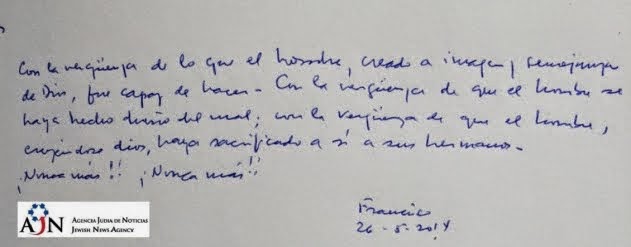 Con la vergüenza de lo que el hombre, creado a imagen y semejanza
de Dios, fue capaz de hacer - Con la vergüenza de que el hombre se
haya hecho dueño del mal; con la vergüenza de que el hombre,
creyéndose dios, haya sacrificado a sí a sus hermanos -
¡Nunca más!! ¡Nunca más!!
Francisco
26-5-2014
AJN AGENCIA JUDIA DE NOTICIAS
JEWISH NEWS AGENCY